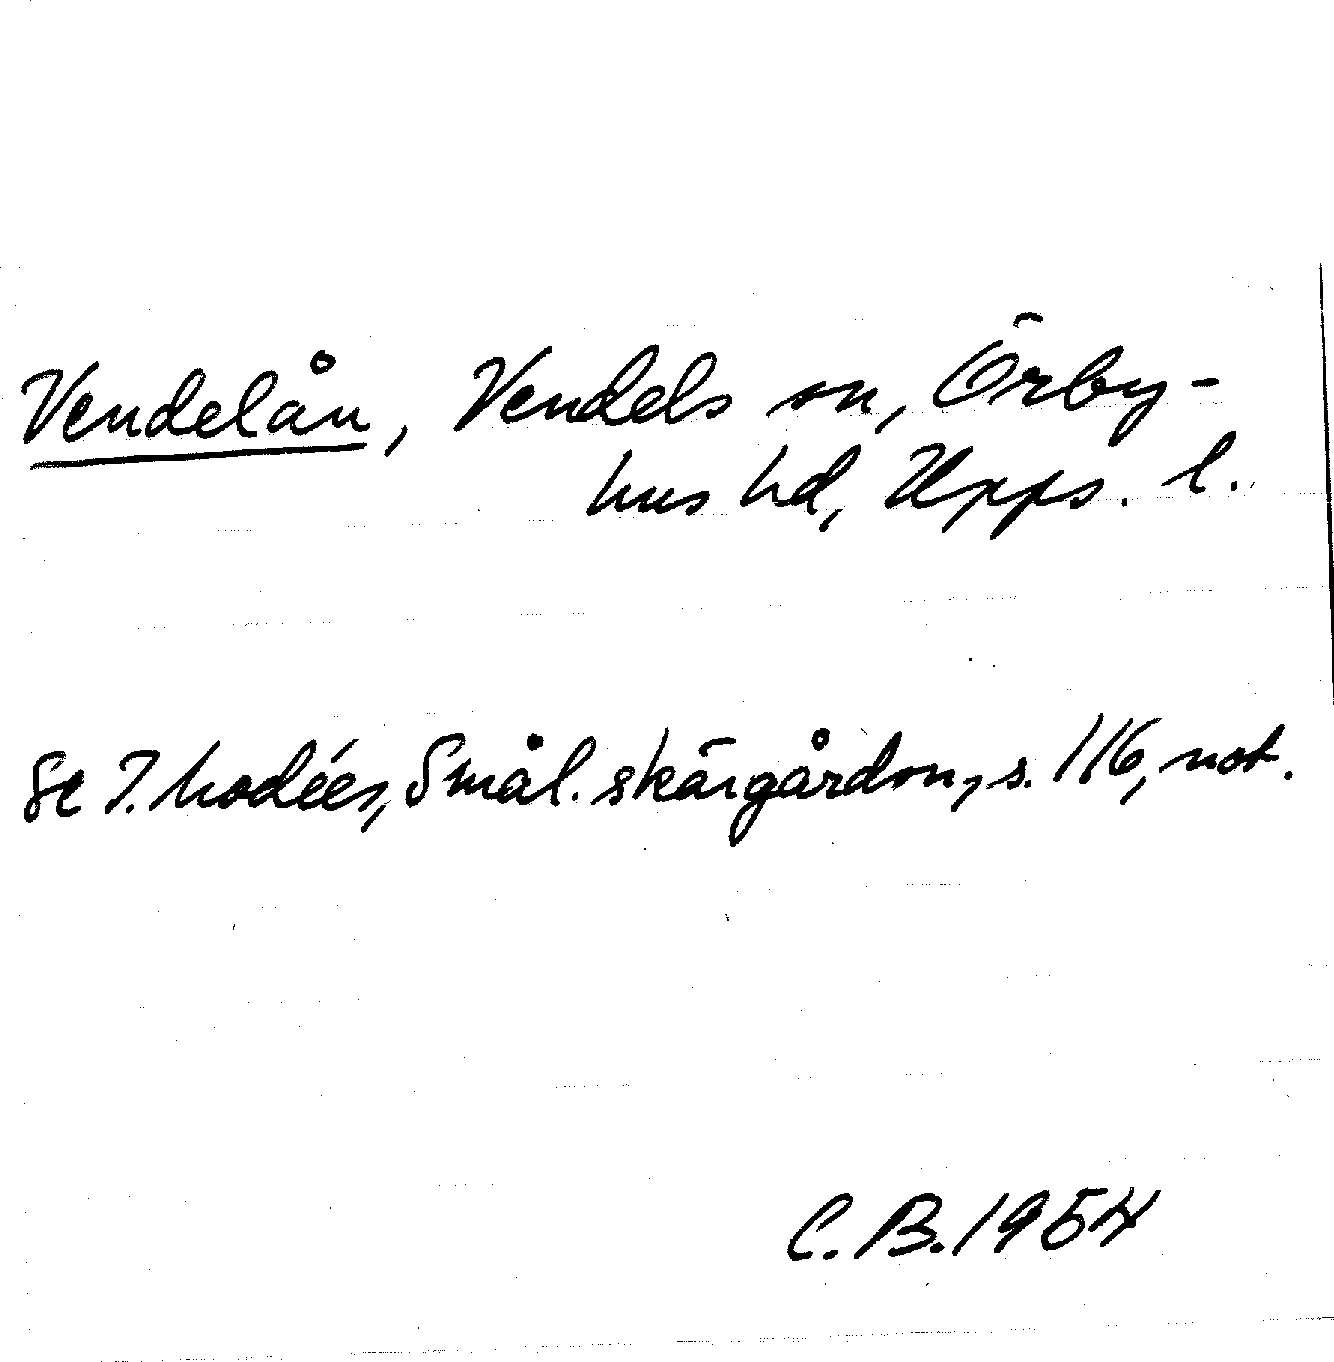 Vendelån, Vendels sn, Örby-
hus hd, Upps. l.
Se I. Modéer, Smål. skärgården, s. 116, not.
C. B. 1954